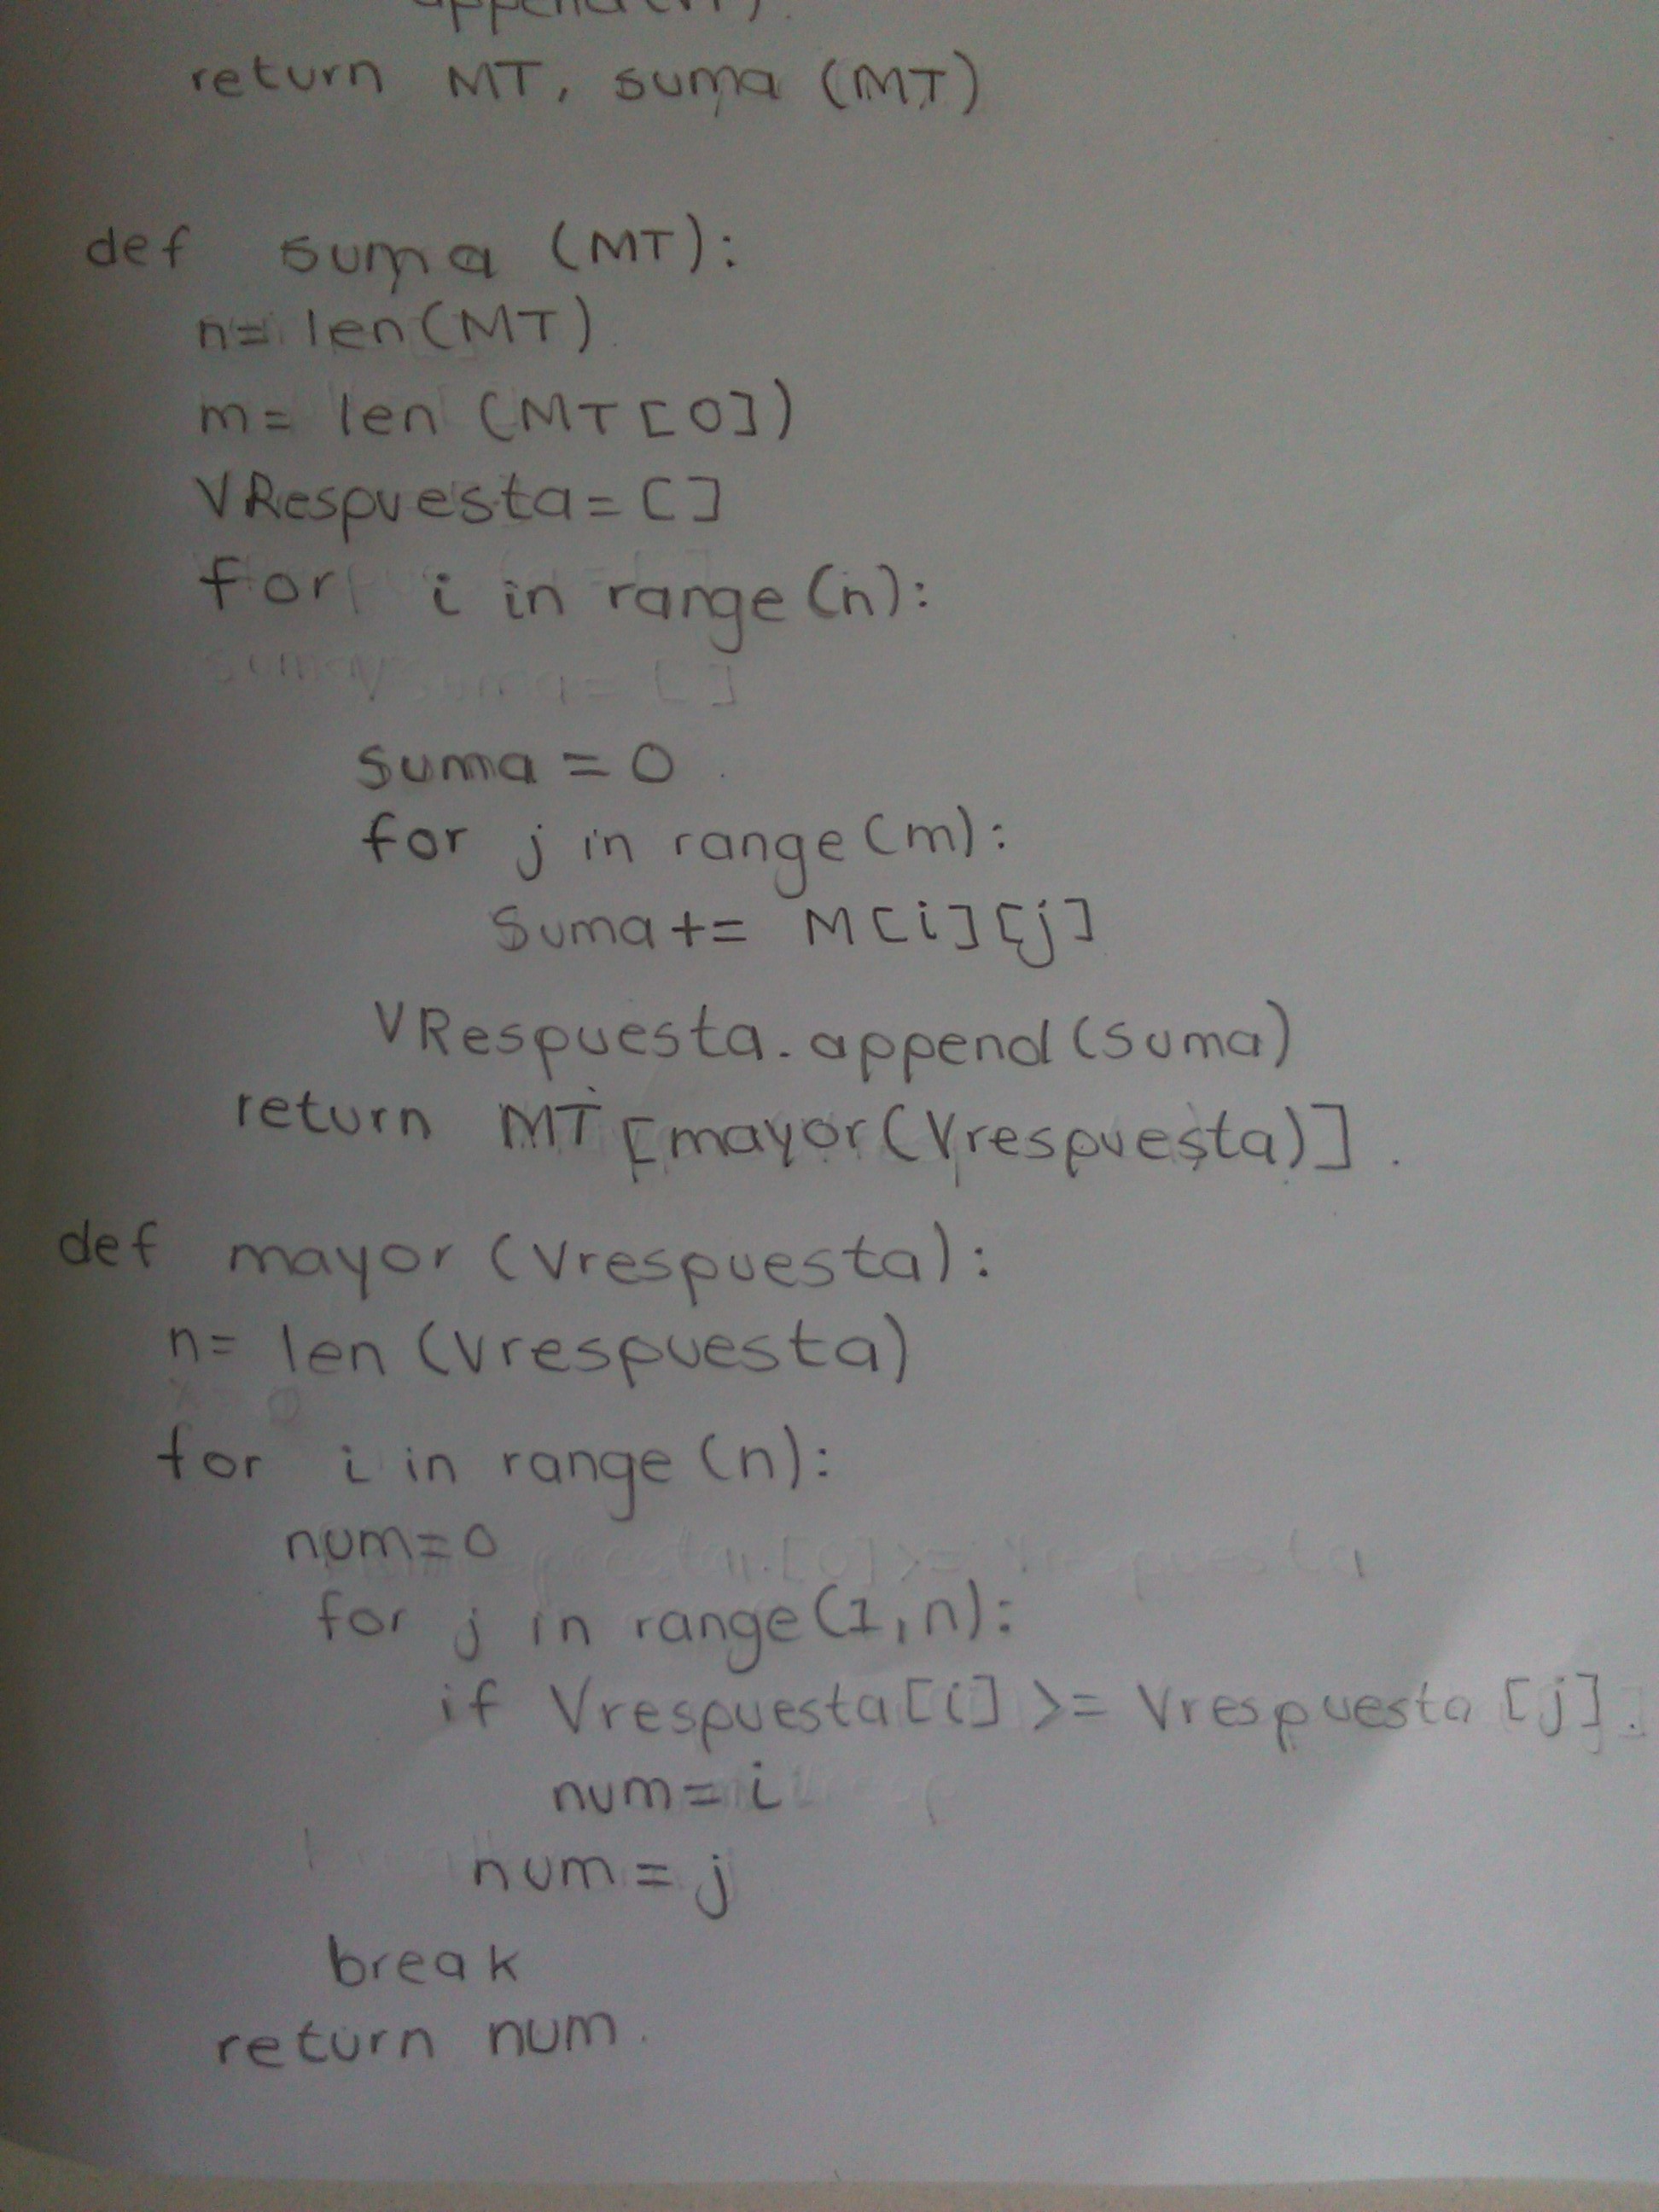 return MT, suma (MT)
def suma (MT):
n= len(MT)
m= len (MT[0])
VRespuesta=[]
for i in range(n):
suma = 0
for j in range(m):
Suma+= M[i][j]
VRespuesta.append(suma)
return MT[mayor(Vrespuesta)].
def mayor (Vrespuesta):
n= len (Vrespuesta)
for i in range (n):
num=0
for j in range(1,n):
if Vrespuesta[i] >= Vrespuesta [j].
num=i
num=j
break
return num.